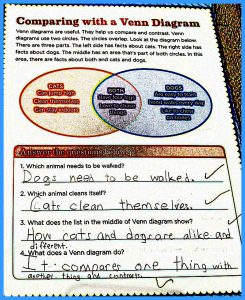 Comparing with a Venn Diagram
Venn diagrams are useful. They help us compare and contrast. Venn
diagrams use two circles. The circles overlap. Look at the diagram below.
There are three parts. The left side has facts about cats. The right side has
facts about dogs. The middle has an area that's part of both circles. In this
area, there are facts about both cats and dogs.
CATS
Can jump high
Clean themselves
Can stay indoors
BOTH
DOGS
Are easy to train
Need walks every day
on bones
1. Which animal needs to be walked?
Dogs need to be walked.
2. Which animal cleans itself?
Cats clean themselves.
3. What does the list in the middle of Venn diagram show?
How cats and dogs are alike and
different.
4. What does a Venn diagram do?
It compares one thing with
another thing and contrasts.